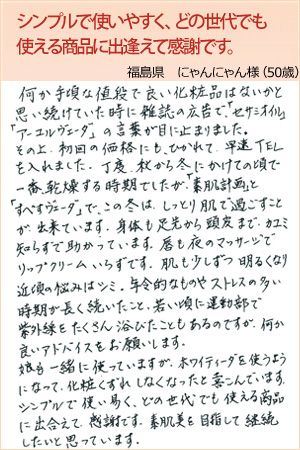 シンプルで使いやすく、どの世代でも
使える商品に出逢えて感謝です。
福島県　にゃんにゃん様（50歳）
何か手頃な値段で良い化粧品はないかと
思い続けていた時に雑誌の広告で、「セサミオイル」
「アーユルヴェーダ」の言葉が目に止まりました。
その上、初回の価格にも、ひかれて、早速TEL
を入れました。丁度、秋から冬にかけての頃で
一番、乾燥する時期でしたが「素肌計画」と
「すべすヴェーダ」で、この冬は、しっとり肌で過ごすこと
が、出来ています。身体も足先から頭皮まで、カユミ
知らずで助かっています。唇も夜のマッサージで
リップクリームいらずです。肌も少しずつ明るくなり
近頃の悩みはシミ。年令的なものやストレスの多い
時期が長く続いたこと、若い頃に運動部で
紫外線をたくさん浴びたこともあるのですが、何か
良いアドバイスをお願いします。
娘も一緒に使っていますが、ホワイティーダを使うよう
になって、化粧くずれしなくなったと喜こんでいます。
シンプルで使い易く、どの世代でも使える商品
に出合えて、感謝です。素肌美を目指して継続
したいと思っています。